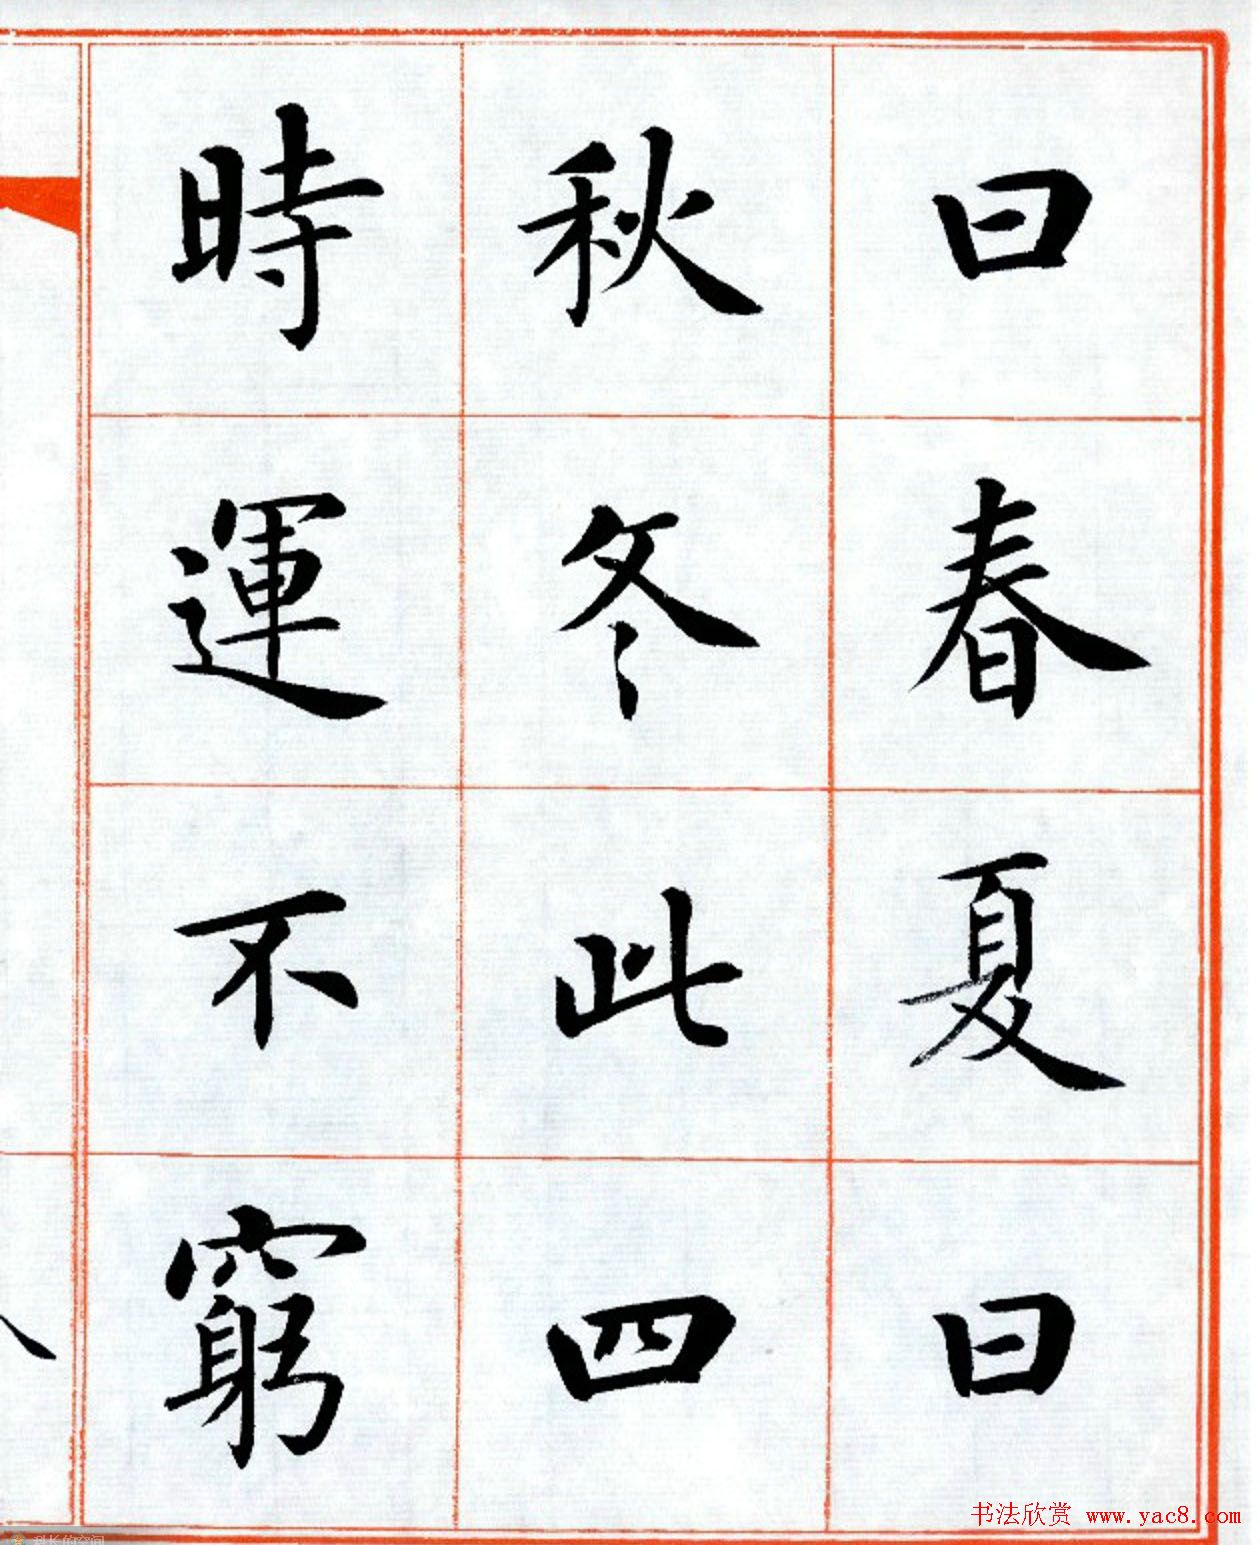 曰春夏曰
秋冬此四
時運不窮
书法欣赏 www.yac8.com
科长的空间